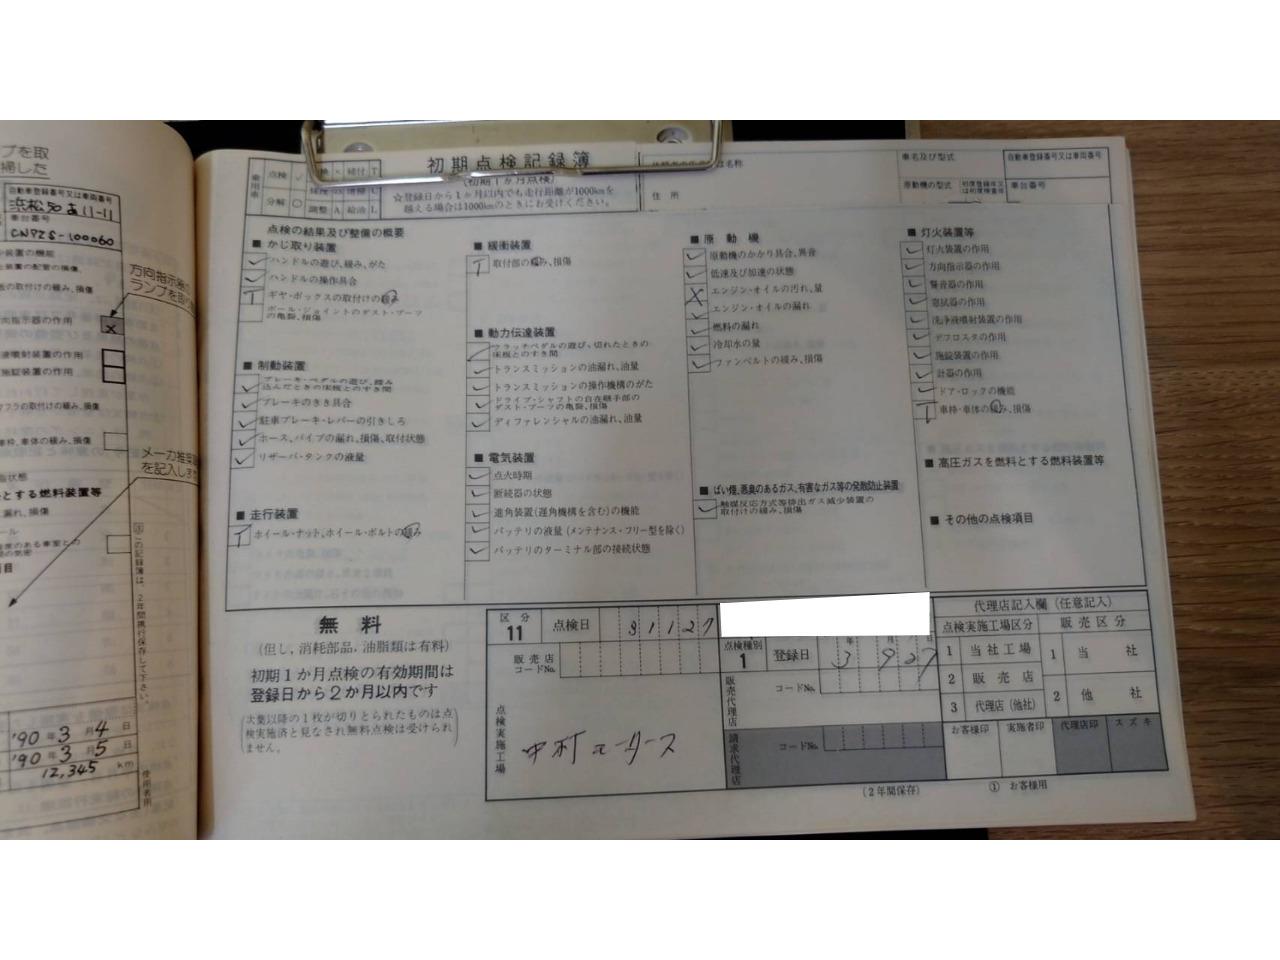 プを取
掃した
自動車登録番号又は車両番号
浜松50あ11-11
車台番号
CN72S-100060
装置の機能
装置の配管の損傷、
の取付けの緩み、損傷
方向指示器の
向指示器の作用
液噴射装置の作用
施錠装置の作用
マフラの取付けの緩み、損傷
車枠、車体の緩み、損傷
メーカ推奨
を記入しま
とする燃料装置等
漏れ、損傷
この記録簿は、2年間携行保存して下さい。
'90年3月4日
'90年3月5日
12,345 km
使用者用
初期点検記録簿
(初期1か月点検)
☆登録日から1か月以内でも走行距離が1000kmを
越える場合は1000kmのときにお受けください。
乗用車
点検 ✓
締付 T
分解 ○
調整 A
給油 L
は名称
住所
車名及び型式
原動機の型式
初度登録年又は初度検査年
自動車登録番号又は車両番号
車台番号
点検の結果及び整備の概要
■ かじ取り装置
ハンドルの遊び、緩み、がた
ハンドルの操作具合
ギヤ・ボックスの取付けの緩み
ボール・ジョイントのダスト・ブーツ
の亀裂、損傷
■ 制動装置
ブレーキ・ペダルの遊び、踏み
込んだときの床板とのすき間
ブレーキのきき具合
駐車ブレーキ・レバーの引きしろ
ホース、パイプの漏れ、損傷、取付状態
リザーバ・タンクの液量
■ 走行装置
ホイール・ナット、ホイール・ボルトの緩み
■ 緩衝装置
取付部の緩み、損傷
■ 動力伝達装置
クラッチペダルの遊び、切れたときの
床板とのすき間
トランスミッションの油漏れ、油量
トランスミッションの操作機構のがた
ドライブ・シャフトの自在継手部の
ダスト・ブーツの亀裂、損傷
ディファレンシャルの油漏れ、油量
■ 電気装置
点火時期
断続器の状態
進角装置(遅角機構を含む)の機能
バッテリの液量(メンテナンス・フリー型を除く)
バッテリのターミナル部の接続状態
■ 原動機
原動機のかかり具合、異音
低速及び加速の状態
エンジン・オイルの汚れ、量
エンジン・オイルの漏れ
燃料の漏れ
冷却水の量
ファンベルトの緩み、損傷
■ ばい煙、悪臭のあるガス、有害なガス等の発散防止装置
触媒反応方式等排出ガス減少装置の
取付けの緩み、損傷
■ 灯火装置等
灯火装置の作用
方向指示器の作用
警音器の作用
窓拭器の作用
洗浄液噴射装置の作用
デフロスタの作用
施錠装置の作用
計器の作用
ドア・ロックの機能
車枠・車体の緩み、損傷
■ 高圧ガスを燃料とする燃料装置等
■ その他の点検項目
無料
(但し、消耗部品、油脂類は有料)
初期1か月点検の有効期間は
登録日から2か月以内です
(次葉以降の1枚が切りとられたものは点
検実施済と見なされ無料点検は受けられ
ません。)
区分
11
点検日
31127
販売店
コードNo.
点検実施工場
中村モータース
点検種別
1
登録日
年 月 日
3 927
販売代理店
コードNo.
請求代理店
コードNo.
代理店記入欄(任意記入)
点検実施工場区分
販売区分
1 当社工場
2 販売店
3 代理店(他社)
1 当社
2 他社
お客様印
実施者印
代理店印
スズキ
(2年間保存)
① お客様用